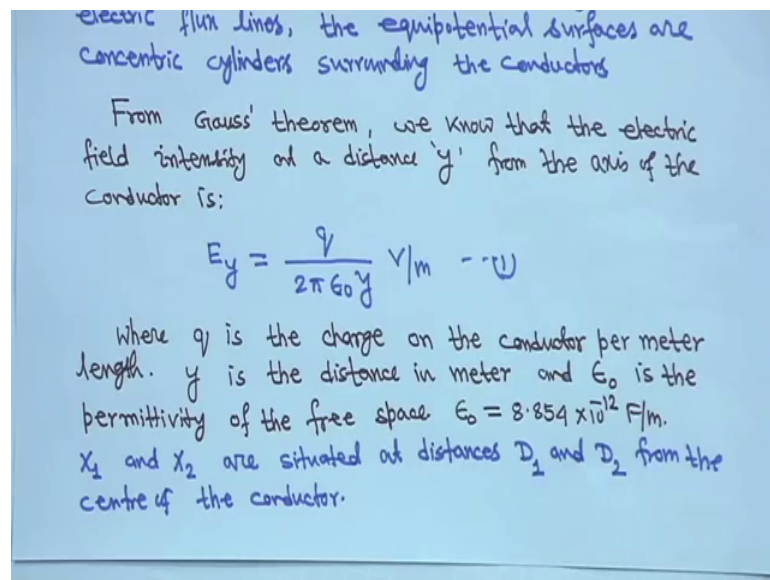 electric flux lines, the equipotential surfaces are
concentric cylinders surrounding the conductors
From Gauss' theorem, we know that the electric
field intensity at a distance 'y' from the axis of the
conductor is:
E_y = q / (2π ε₀ y) V/m --- (1)
where q is the charge on the conductor per meter
length. y is the distance in meter and ε₀ is the
permittivity of the free space ε₀ = 8.854 × 10⁻¹² F/m.
X₁ and X₂ are situated at distances D₁ and D₂ from the
centre of the conductor.